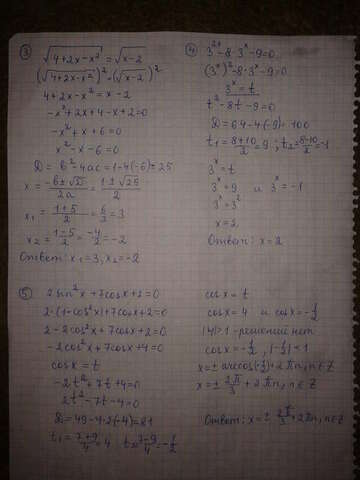 ③
√4+2x-x² = √x-2
(√4+2x-x²)² = (√x-2)²
4+2x-x² = x-2
-x²+2x+4-x+2=0
-x²+x+6=0
x²-x-6=0
D = b²-4ac = 1-4(-6)=25
x = -b±√D/2a = 1±√25/2
x₁ = 1+5/2 = 6/2 = 3
x₂ = 1-5/2 = -4/2 = -2
Ответ: x₁=3, x₂=-2
④
3²ˣ-8·3ˣ-9=0
(3ˣ)²-8·3ˣ-9=0
3ˣ=t
t²-8t-9=0
D=64-4(-9)=100
t₁=8+10/2=9; t₂=8-10/2=-1
3ˣ=t
3ˣ=9 и 3ˣ=-1
3ˣ=3²
x=2
Ответ: x=2
⑤
2sin²x+7cosx+2=0
2·(1-cos²x)+7cosx+2=0
2-2cos²x+7cosx+2=0
-2cos²x+7cosx+4=0
cosx=t
-2t²+7t+4=0
2t²-7t-4=0
D=49-4·2(-4)=81
t₁=7+9/4=4 t₂=7-9/4=-1/2
cosx=t
cosx=4 и cosx=-1/2
|4|>1-решений нет
cosx=-1/2, |-1/2|<1
x=±arccos(-1/2)+2πn, n∈Z
x=±2π/3+2πn, n∈Z
Ответ: x=±2π/3+2πn, n∈Z